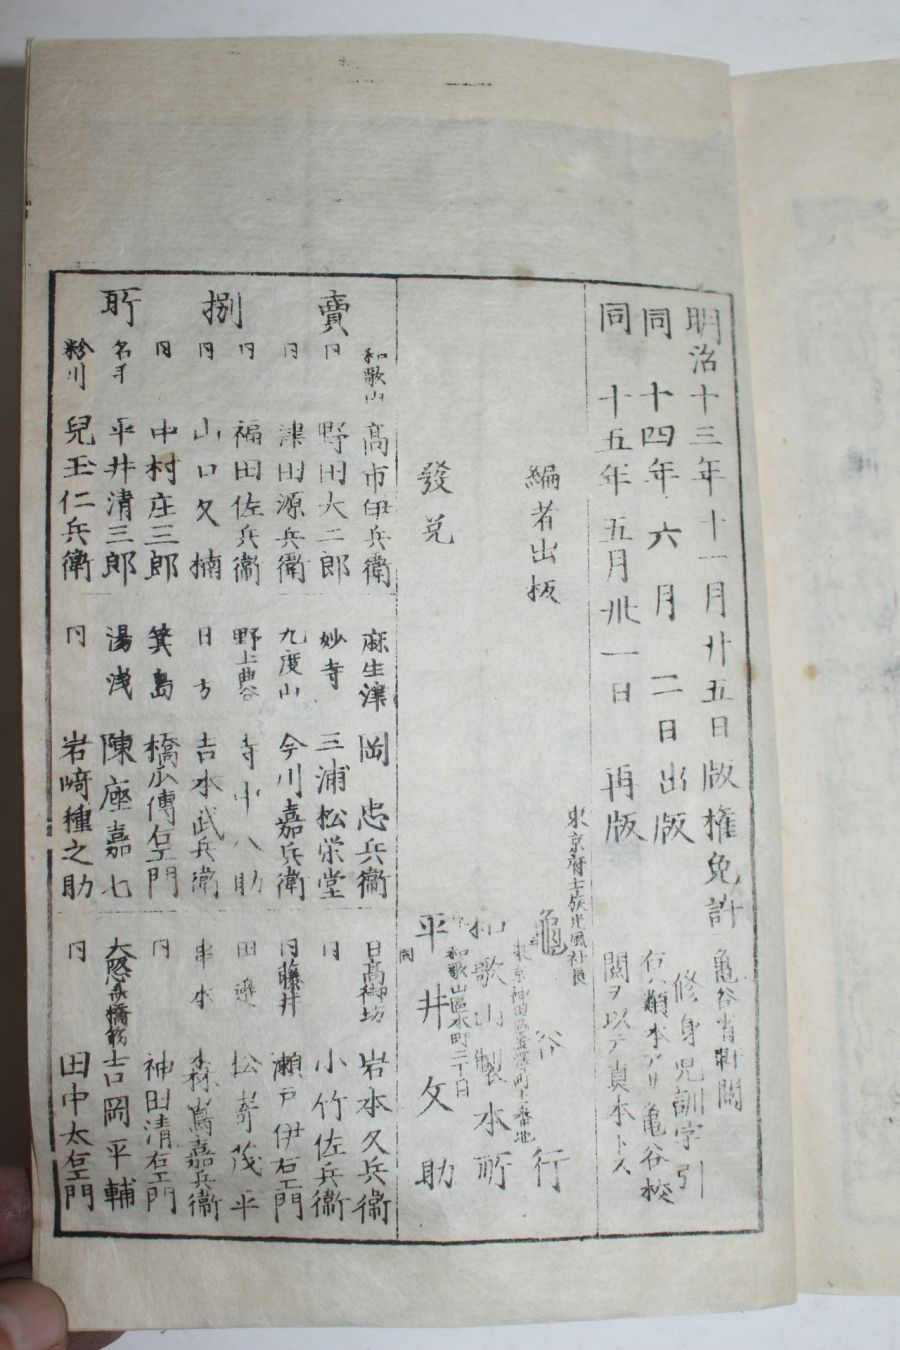 明治十三年十一月廿五日版権免許
同十四年六月二日出版
同十五年五月卅一日再版
亀谷省軒閲
修身児訓字引
右ハ類本アリ亀谷校
閲ヲ以テ真本トス
編者出板
東京府士族光風社長
亀谷行
東京神田区
番地
發兌
和歌山製本所
和歌山区
町二丁目
平井文助
賣捌所
和歌山 高市伊兵衛
同 野田大二郎
同 津田源兵衛
同 福田佐兵衞
同 山口久楠
同 中村庄三郎
名手 平井清三郎
粉川 兒玉仁兵衛
麻生津 岡忠兵衞
妙寺 三浦松栄堂
九度山 今川嘉兵衛
野上 寺中八助
日方 吉水武兵衛
箕島 橋爪傳右エ門
湯浅 陳座嘉七
同 岩﨑種之助
日高御坊 岩本久兵衞
同 小竹佐兵衞
同藤井 瀬戸伊右エ門
田邉 松嵜茂平
串本 森嶌嘉兵衞
同 神田清右エ門
大 橋筋 吉岡平輔
同 田中太右エ門